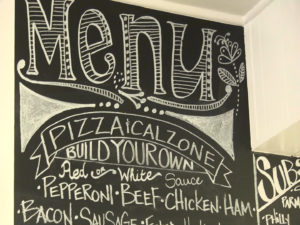 Menu
PIZZA & CALZONE
BUILD YOUR OWN
Red or White Sauce
• PEPPERONI • BEEF • CHICKEN • HAM •
BACON • SAUSAGE •
SUBS
PARM
PHILLY